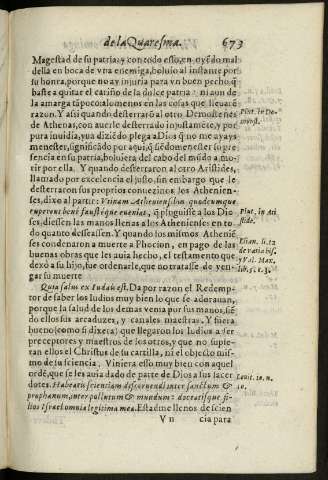 de la Quaresma. 673
Magestad de su patria: y con todo esso, en oyẽdo mal
della en boca de vna enemiga, boluio al instante por
su honra, porque no ay injuria para vn buen pecho, q̃
baste a quitar el cariño de la dulce patria: ni aun de
la amarga tãpoco: alomenos en las cosas que lleuã ra
razon. Y assi quando desterrarõ al otro Demostenes
de Athenas, con auerle desterrado injustamẽte, y por
pura inuidia, yua diziẽdo plega a Dios q̃ no me ayays
menester, significãdo por aqui, q̃ siẽdo menester su pre
sencia en su patria, boluiera del cabo del mũdo a mo-
rir por ella. Y quando desterraron al otro Aristides,
llamado por excelencia el justo, sin embargo que le
desterraron sus proprios conuezinos los Athenien-
ses, dixo al partir: Vtinam Atheniensibus quodcumque
cuperent bene faustèque eueniat, q̃ pluguiesse a los Dio
ses, diessen las manos llenas a los Athenienses en to-
do quanto desseassen. Y quando los mismos Atheniẽ
ses condenaron a muerte a Phocion, en pago de las
buenas obras que les auia hecho, el testamento que
dexó a su hijo, fue ordenarle, que no tratasse de ven-
gar su muerte
Plut. in De
Plut. in Ari
stide.
Elian. li. 12
de varia his.
y Val. Max.
lib. 5. c. 3.
Quia salus ex Iudæis est. Da por razon el Redemp-
tor de saber los Iudios muy bien lo que se adorauan,
porque la salud de los demas venia por sus manos, siẽ
do ellos sus arcaduzes, y canales maestras. Y fuera
bueno (como si dixera) que llegaron los Iudios a ser
preceptores y maestros de los otros, y que no supie-
ran ellos el Christus de su cartilla, ni el objecto mis-
mo de su sciencia. Viniera esso muy bien con aquel
ordẽ, que se les auia dado de parte de Dios a sus sacer
dotes. Habeatis scientiam discernendi inter sanctum &
prophanum, inter pollutum & mundum: doceatisque fi-
lios Israel omnia legitima mea. Estad me llenos de scien
Leuit. 10. n.
10.
V n cia para